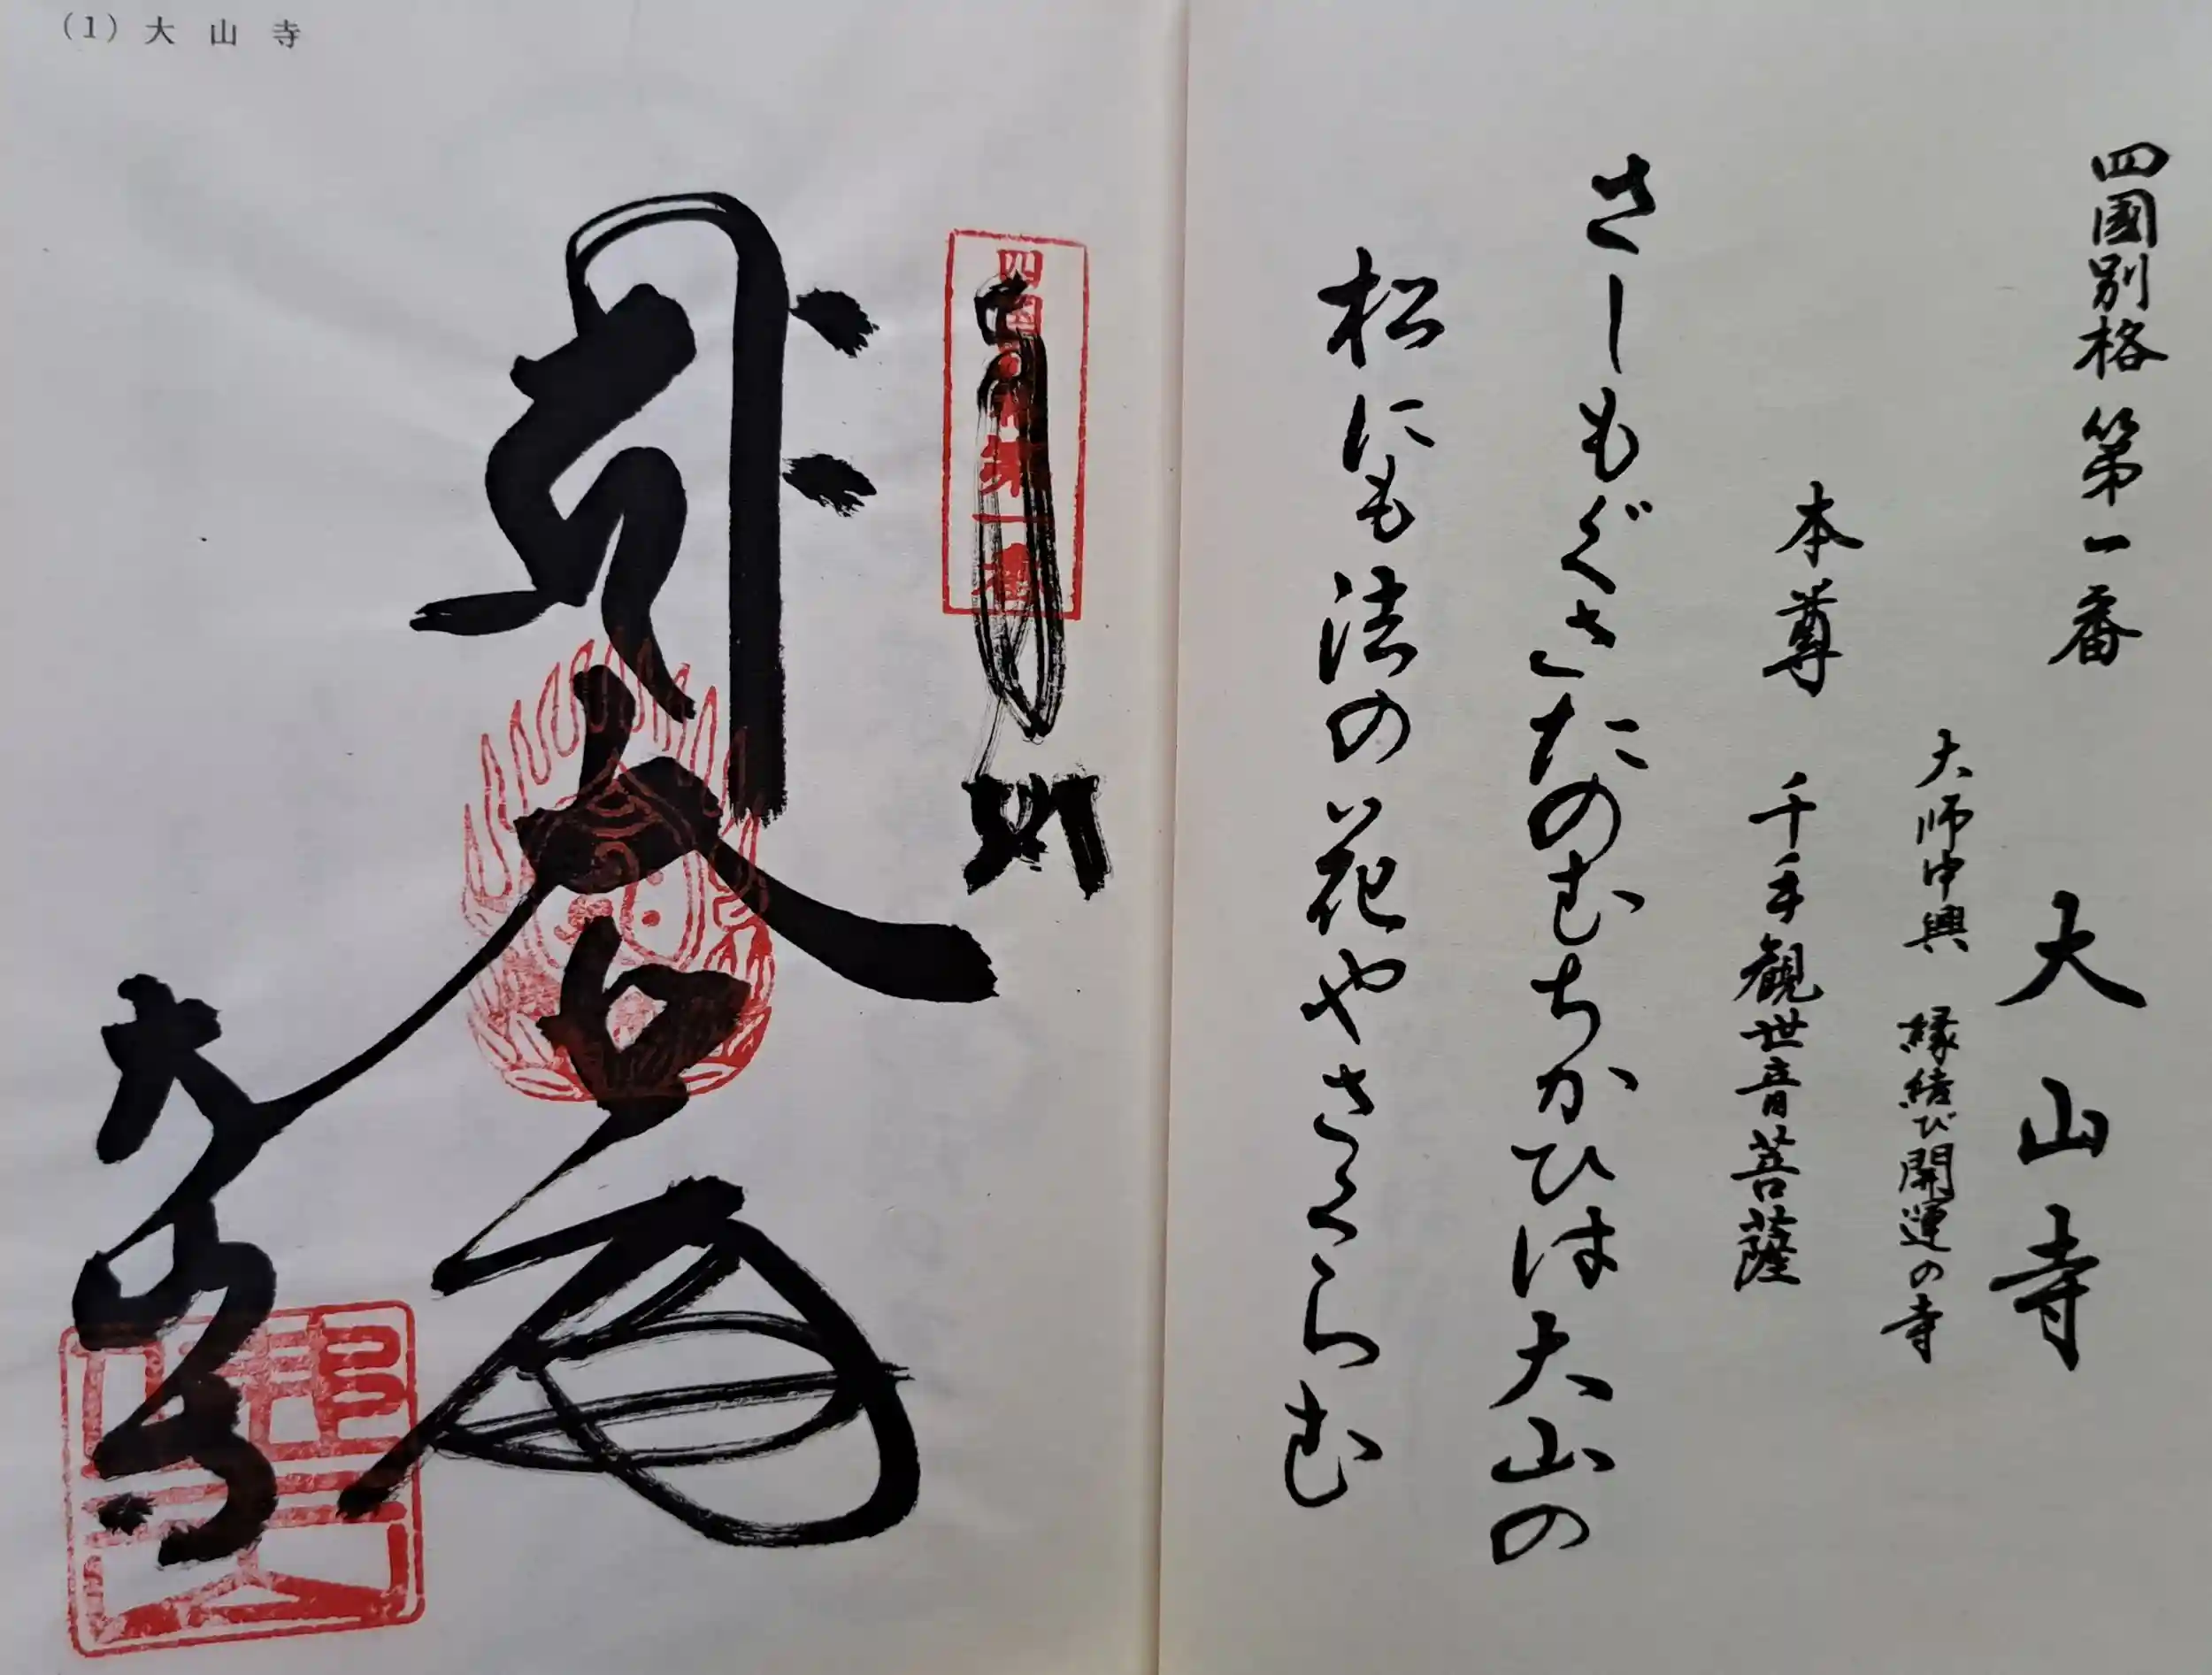 四國別格第一番 大山寺
大師中興 縁結び開運の寺
本尊 千手観世音菩薩
さしもぐさたのむちかひは大山の
松にも法の花やさくらむ
(1) 大山寺
四国別格第一番
奉拝
大悲殿
大山寺